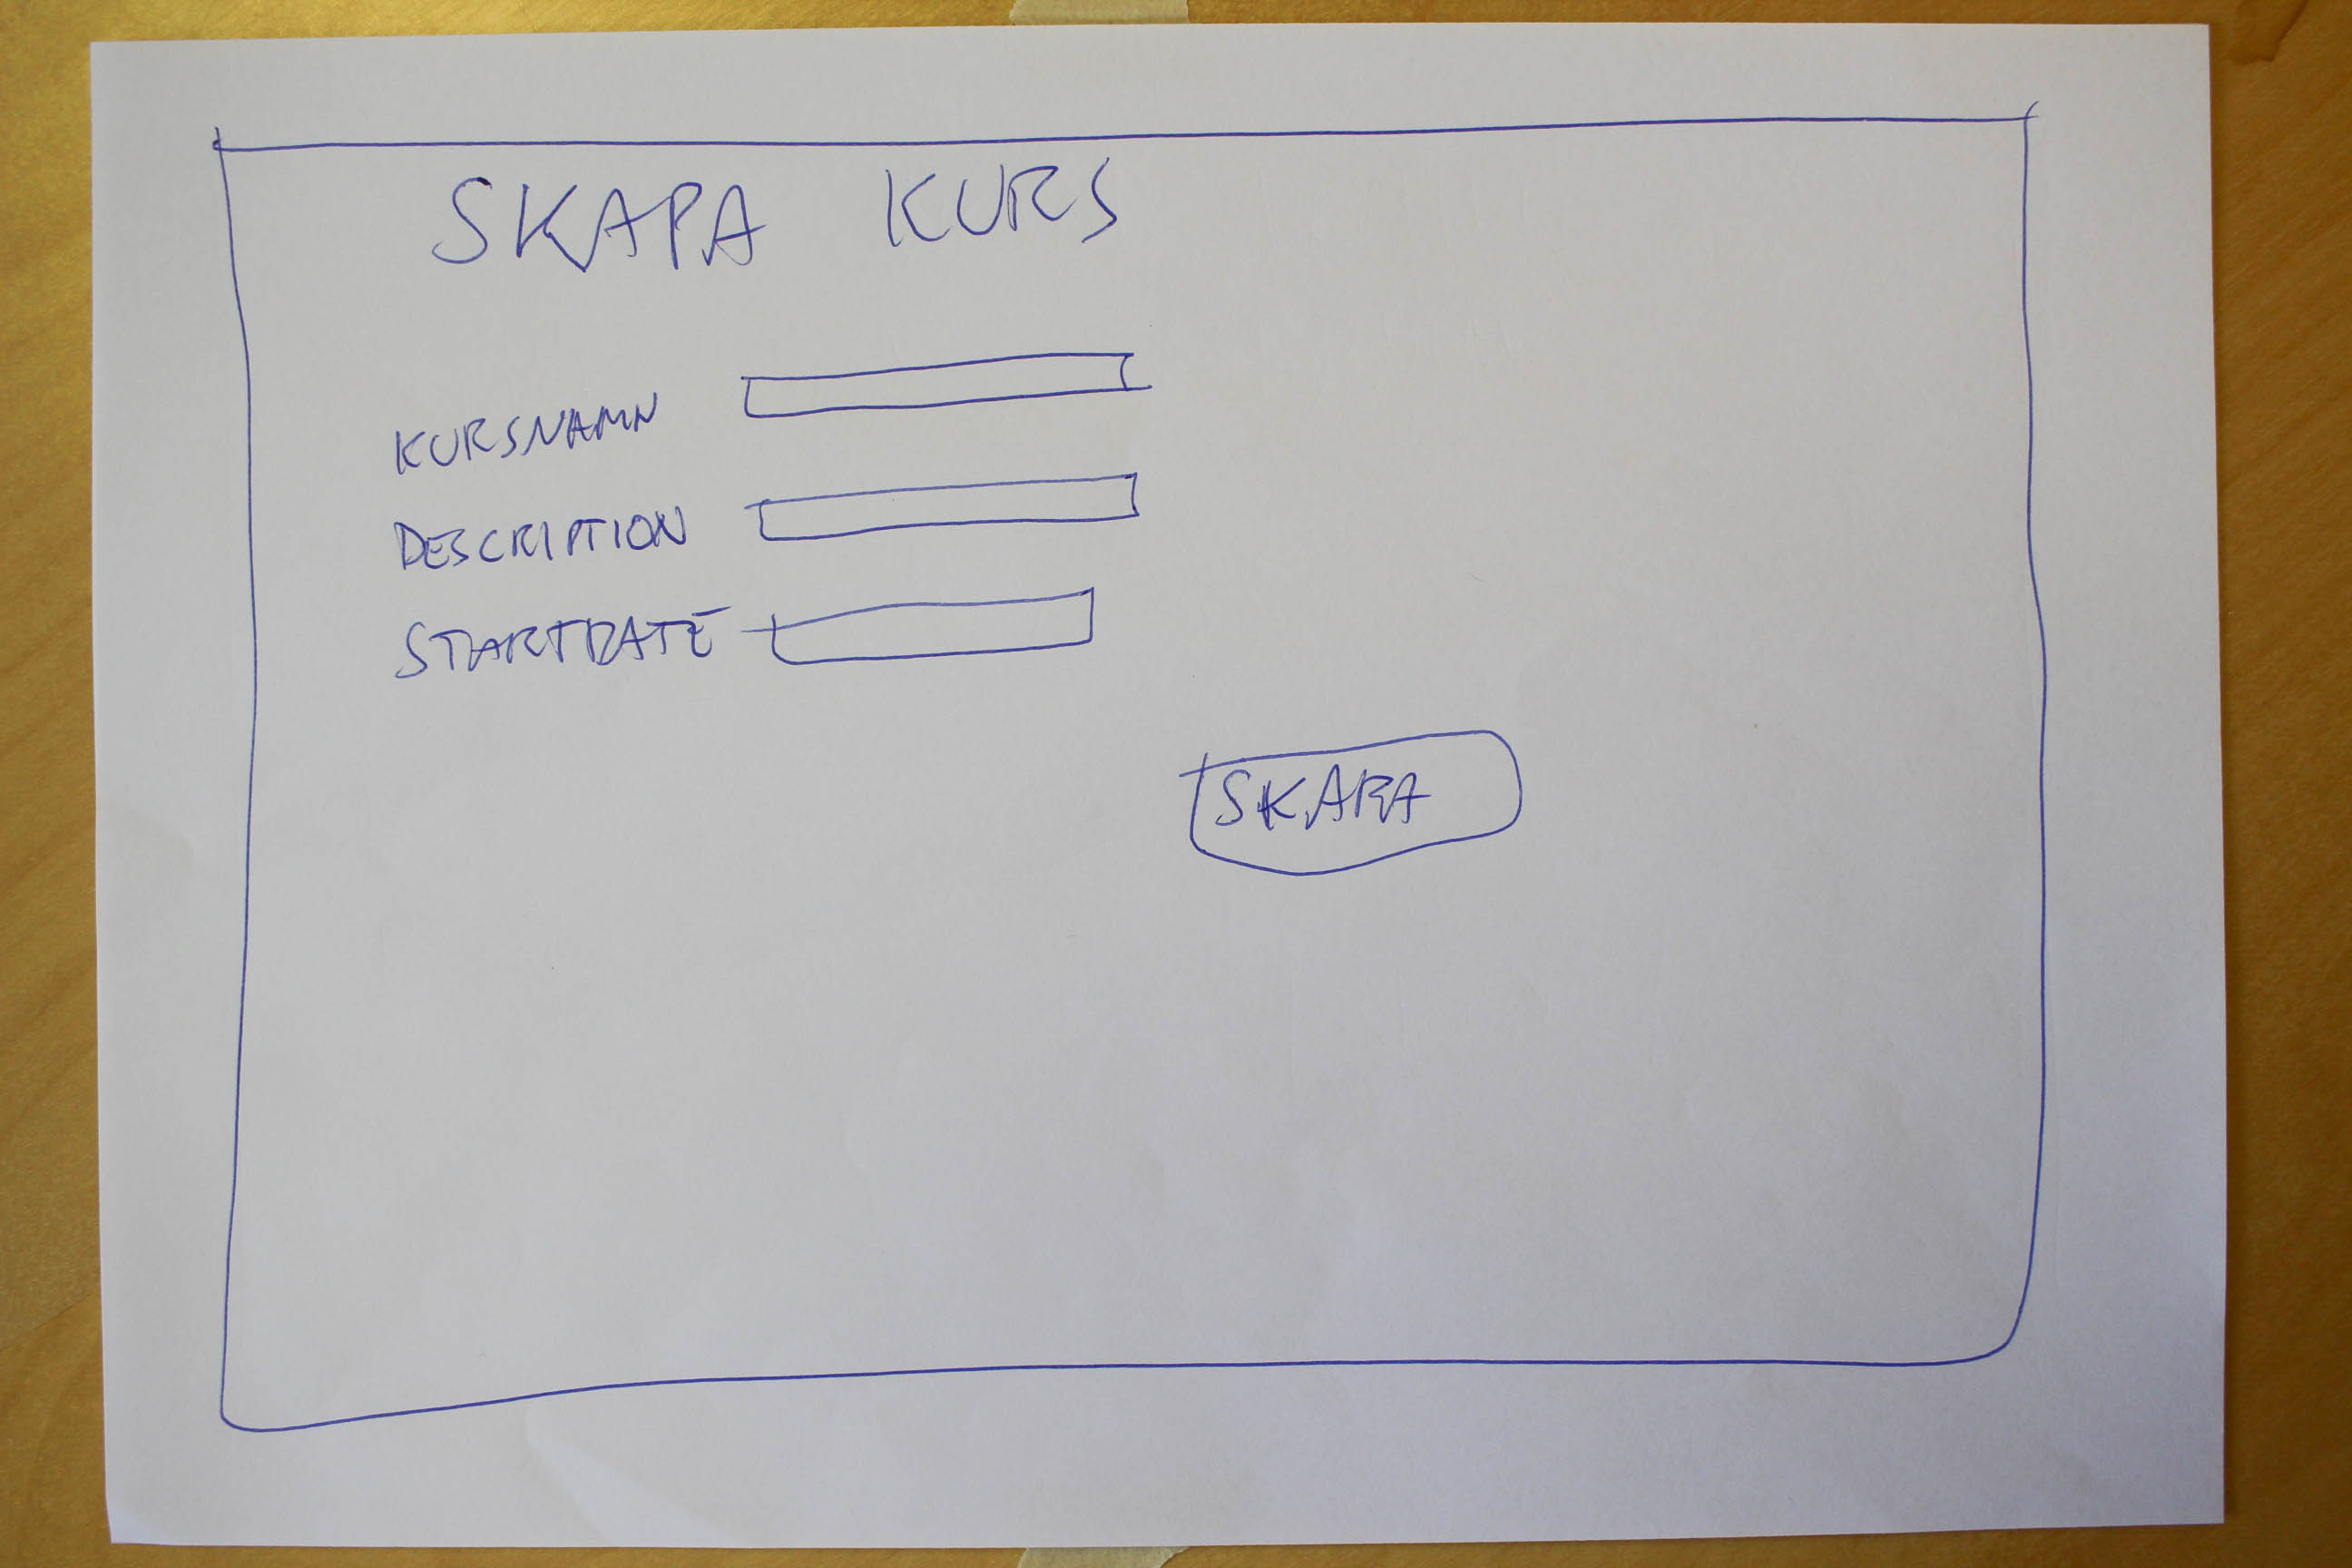 SKAPA KURS
KURSNAMN
DESCRIPTION
STARTDATE
SKAPA